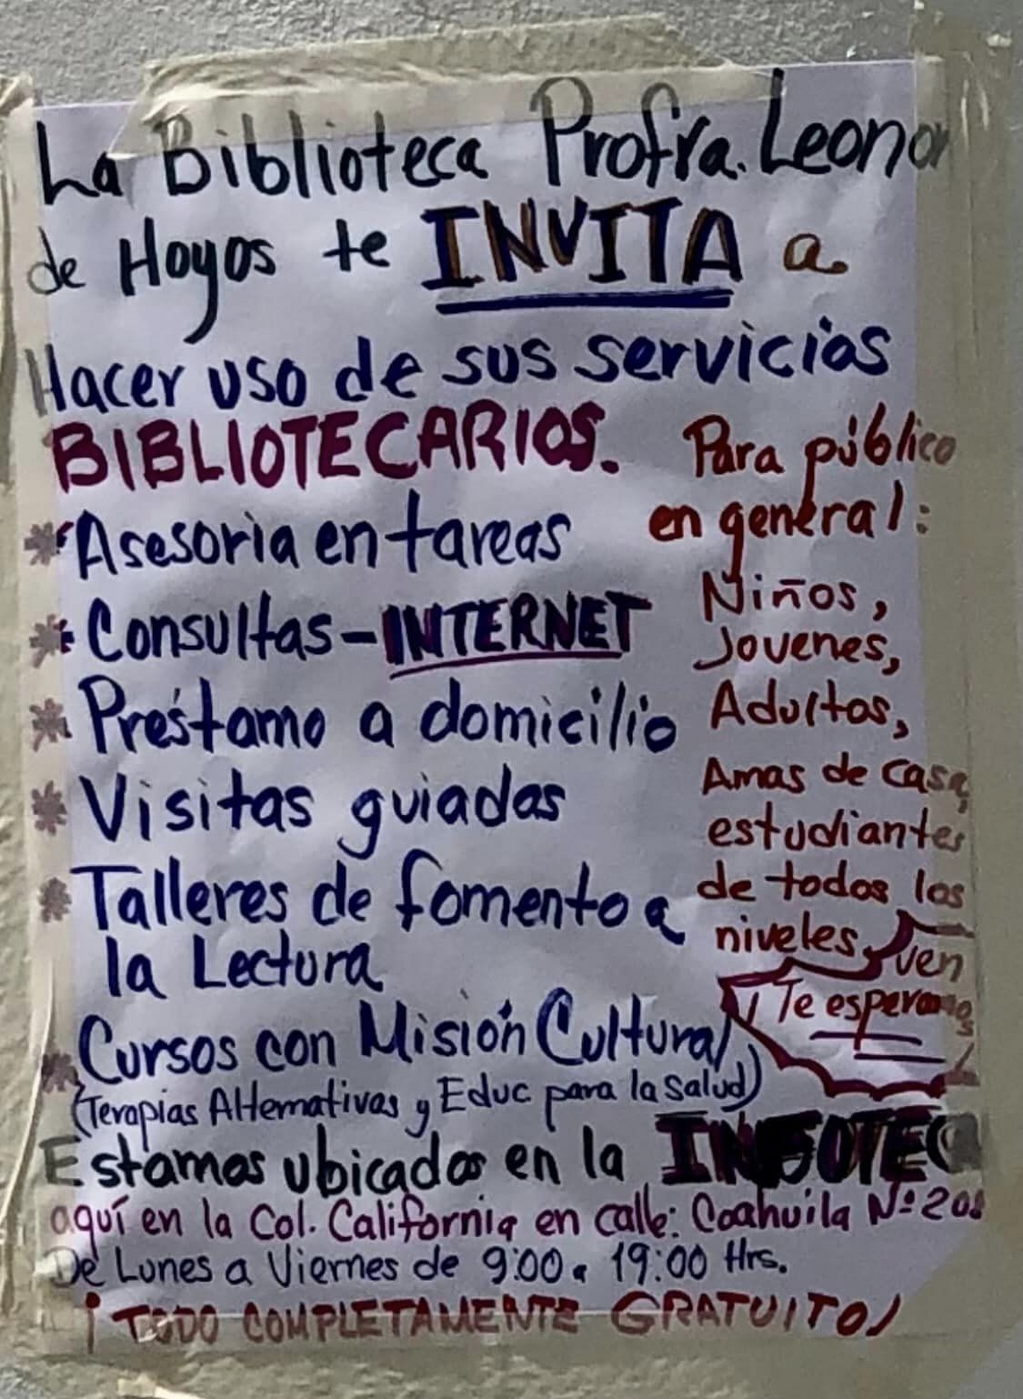 La Biblioteca Profra. Leonor
de Hoyos te INVITA a
Hacer uso de sus servicios
BIBLIOTECARIOS.
* Asesoria en tareas
* Consultas-INTERNET
* Préstamo a domicilio
* Visitas guiadas
* Talleres de fomento a
la Lectura
* Cursos con Misión Cultural
(Terapias Alternativas y Educ para la salud)
Para público
en general:
Niños,
Jovenes,
Adultos,
Amas de casa,
estudiantes
de todos los
niveles, ven
¡Te esperamos
Estamos ubicados en la INFOTECA
aquí en la Col. California en calle: Coahuila Nº 208
De Lunes a Viernes de 9:00 a 19:00 Hrs.
¡TODO COMPLETAMENTE GRATUITO!